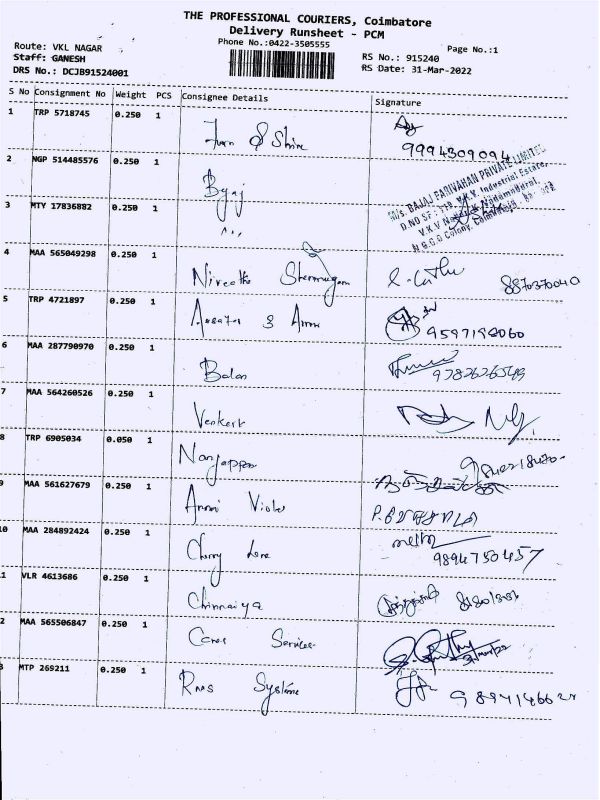 THE PROFESSIONAL COURIERS, Coimbatore
Delivery Runsheet - PCM
Phone No.:0422-3505555
Page No.:1
Route: VKL NAGAR
Staff: GANESH
DRS No.: DCJB91524001
RS No.: 915240
RS Date: 31-Mar-2022
S No Consignment No Weight PCS Consignee Details Signature
1 TRP 5718745 0.250 1
& Shine
9994309094
2 NGP 514485576 0.250 1
Bajaj
M/s. BAJAJ PARIVAHAN PRIVATE LIMITED
Industrial Estate,
N.G.G.O Colony, Coimbatore
3 MTY 17836882 0.250 1
4 MAA 565049298 0.250 1
Nivetha Shanmugam
8870370040
5 TRP 4721897 0.250 1
9597198060
6 MAA 287790970 0.250 1
Balan
9782626549
7 MAA 564260526 0.250 1
Venkert
8 TRP 6905034 0.050 1
Nanjappa
9 MAA 561627679 0.250 1
Ammi Violet
10 MAA 284892424 0.250 1
Cherry Lane
9894750457
1 VLR 4613686 0.250 1
Chinnaiya
2 MAA 565506847 0.250 1
Services
3 MTP 269211 0.250 1
Rms Systems